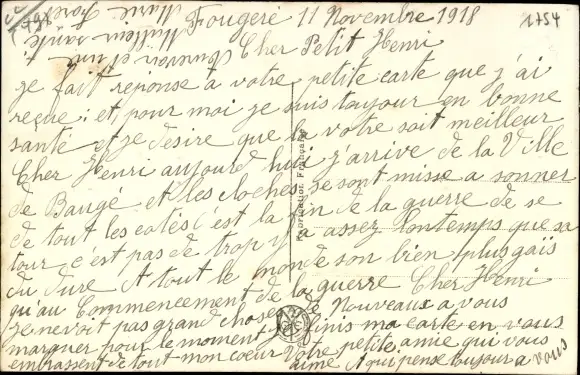 Fougeré 11 Novembre 1918
1754
Cher Petit Henri
je fait reponse a votre petite carte que j'ai
reçue et pour moi je suis toujour en bonne
santé et je desire que la votre soit meilleur
Cher Henri aujourd hui j'arrive de la Ville
de Baugé et les cloches se sont misse a sonner
de tout les cotés c'est la fin de la guerre de se
tour c'est pas de trop y a assez lontemps que sa
du dure A tout le monde son bien plus gais
qu'au Commencement de la guerre Cher Henri
Je ne voit pas grand chose de Nouveaux a vous
marquer pour le moment je finis ma carte en vous
embrassent de tout mon coeur Votre petite amie qui vous
aime A qui pense toujour a vous
Fabrication Française
Aurevoir et une
santé
Marie